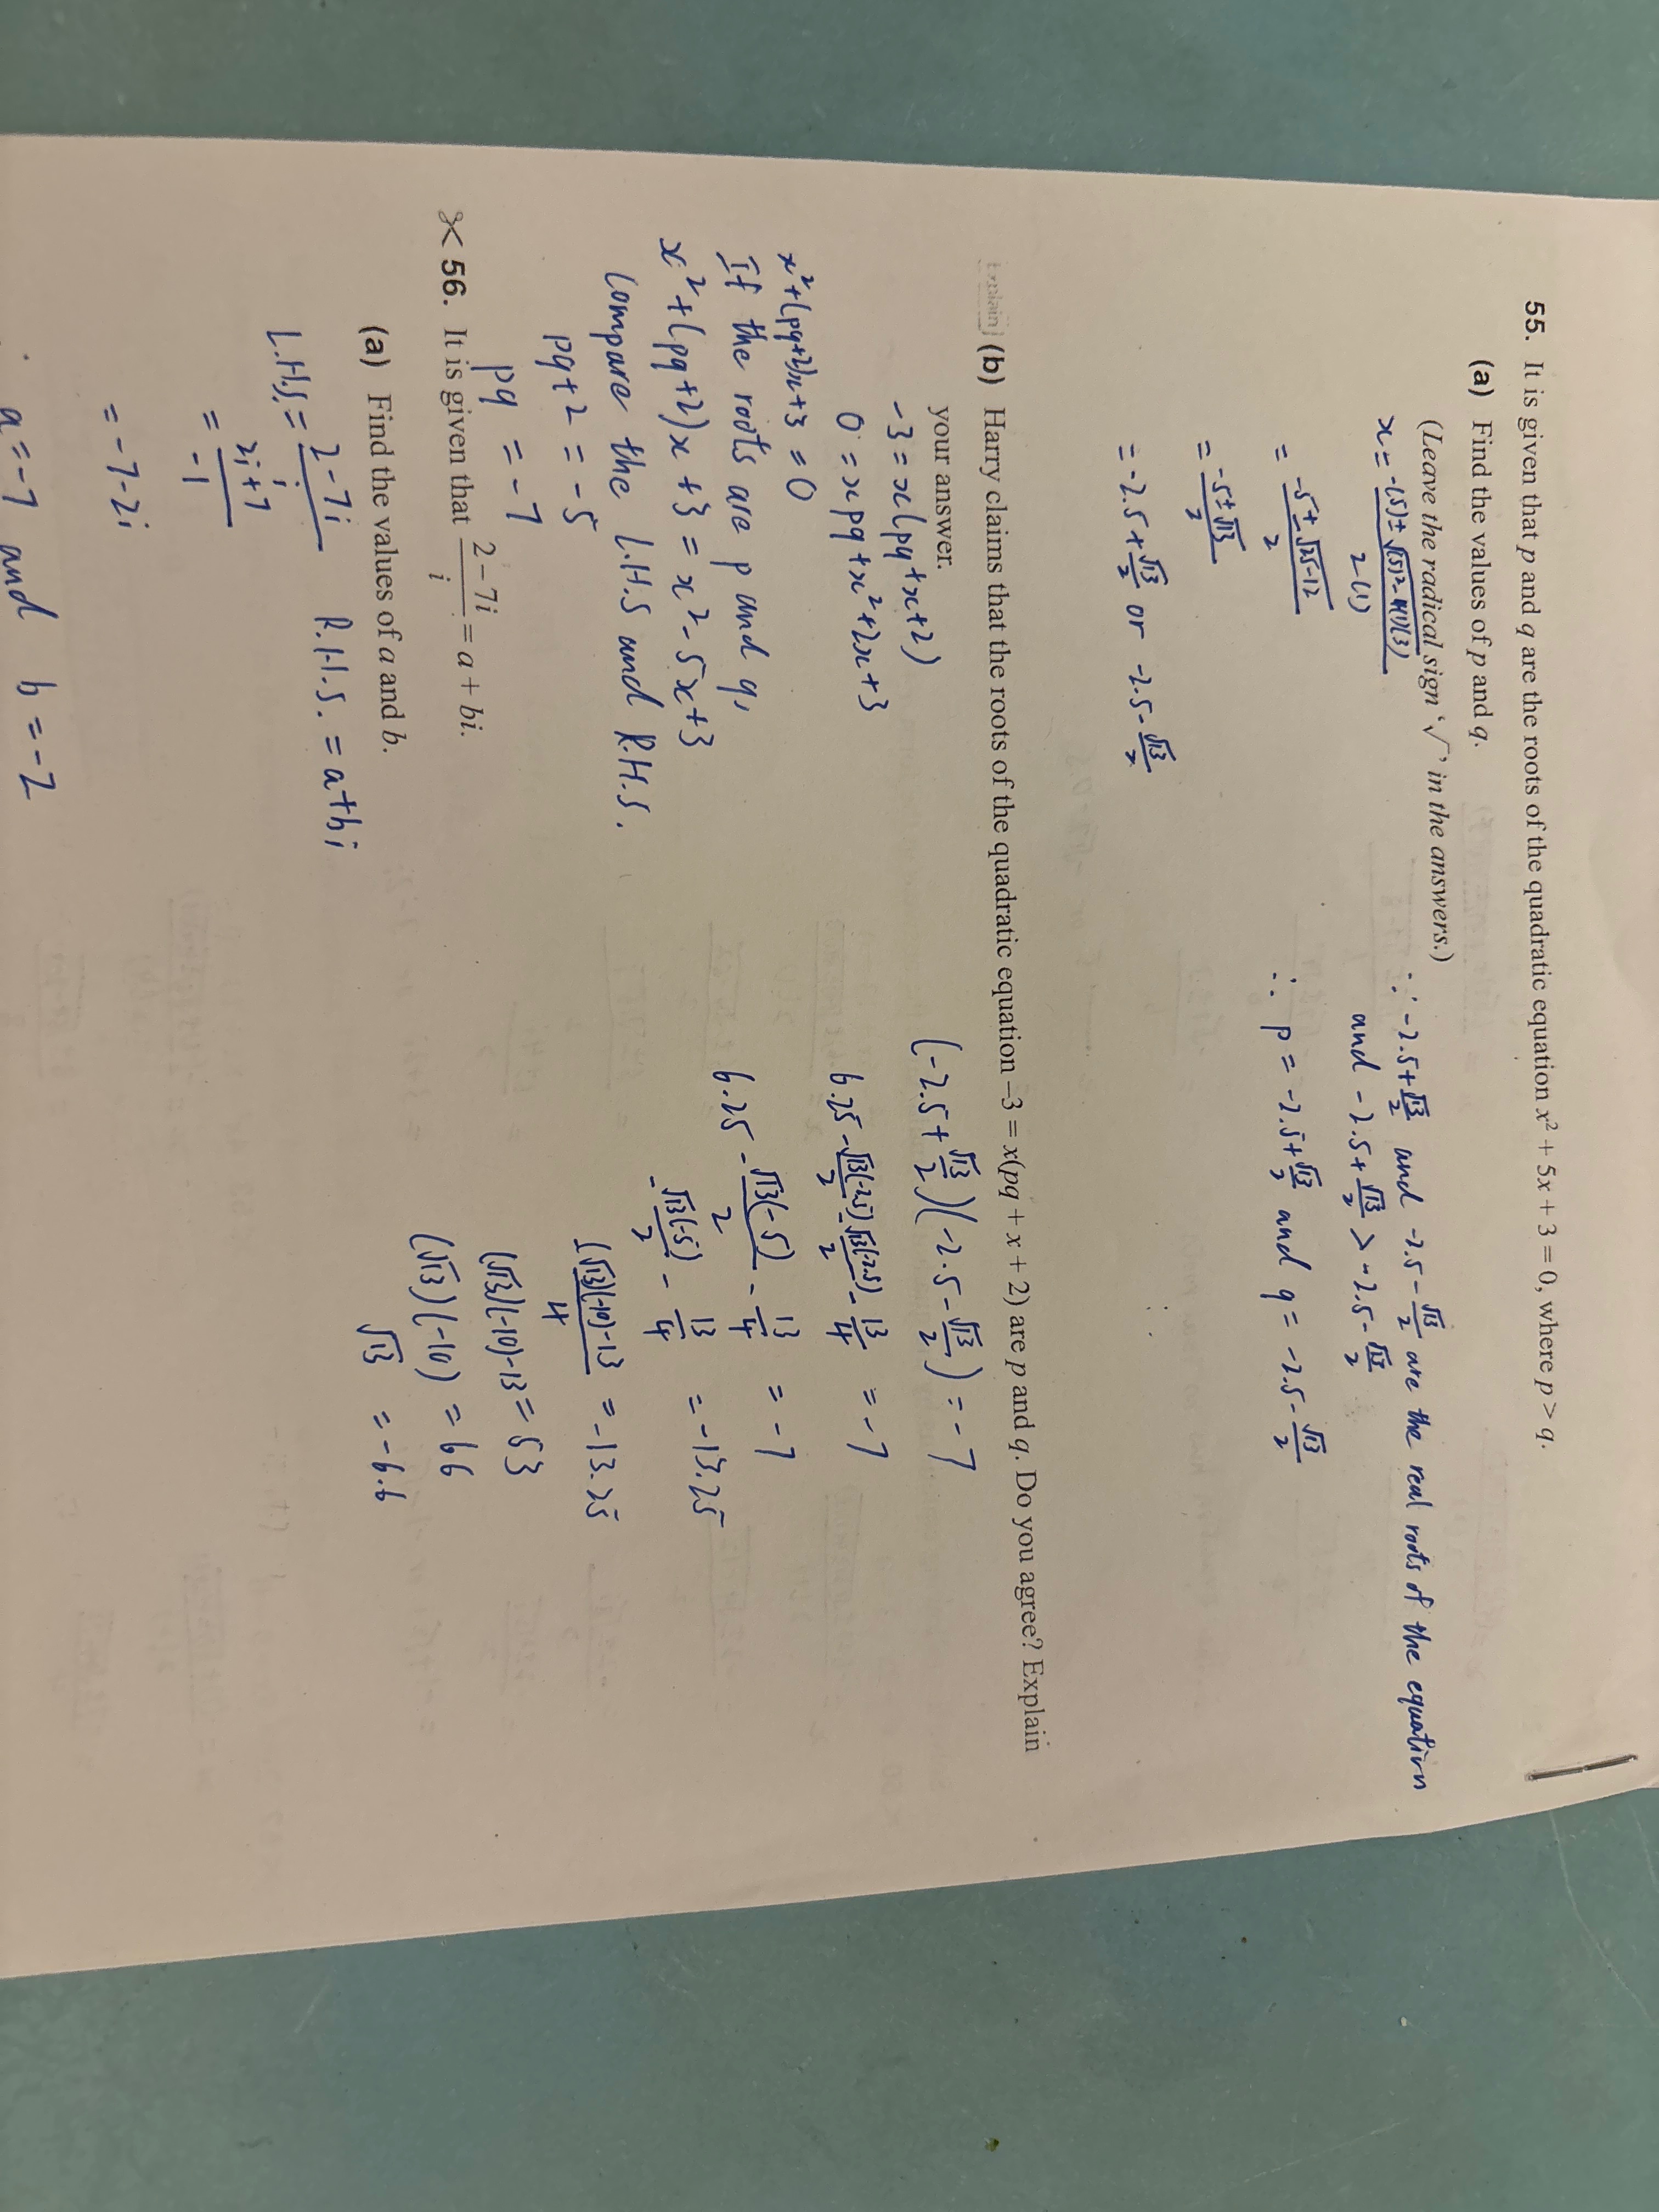 55. It is given that p and q are the roots of the quadratic equation x² + 5x + 3 = 0, where p > q.
(a) Find the values of p and q.
(Leave the radical sign '√' in the answers.)
x = -(5)±√(5)²-4(1)(3) / 2(1)
= -5±√25-12 / 2
= -5±√13 / 2
= -2.5+√13/2 or -2.5-√13/2
∵ -2.5+√13/2 and -2.5-√13/2 are the real roots of the equation
and -2.5+√13/2 > -2.5-√13/2
∴ p = -2.5+√13/2 and q = -2.5-√13/2
Explain (b) Harry claims that the roots of the quadratic equation –3 = x(pq + x + 2) are p and q. Do you agree? Explain
your answer.
-3 = x(pq+x+2)
0 = xpq+x²+2x+3
x²+(pq+2)x+3 = 0
If the roots are p and q,
x²+(pq+2)x+3 = x²-5x+3
Compare the L.H.S and R.H.S.
pq+2 = -5
pq = -7
(-2.5+√13/2)(-2.5-√13/2) = -7
6.25-√13(-2.5)/2-√13(-2.5)/2-13/4 = -7
6.25-√13(-5)/2-13/4 = -7
-√13(-5)/2-13/4 = -13.25
(√13)(-10)-13/4 = -13.25
(√13)(-10)-13 = 53
(√13)(-10) = 66
√13 = -6.6
56. It is given that 2 – 7i / i = a + bi.
(a) Find the values of a and b.
L.H.S = 2-7i / i R.H.S. = a+bi
= 2i+7 / -1
= -7-2i
a = -7 and b = -2